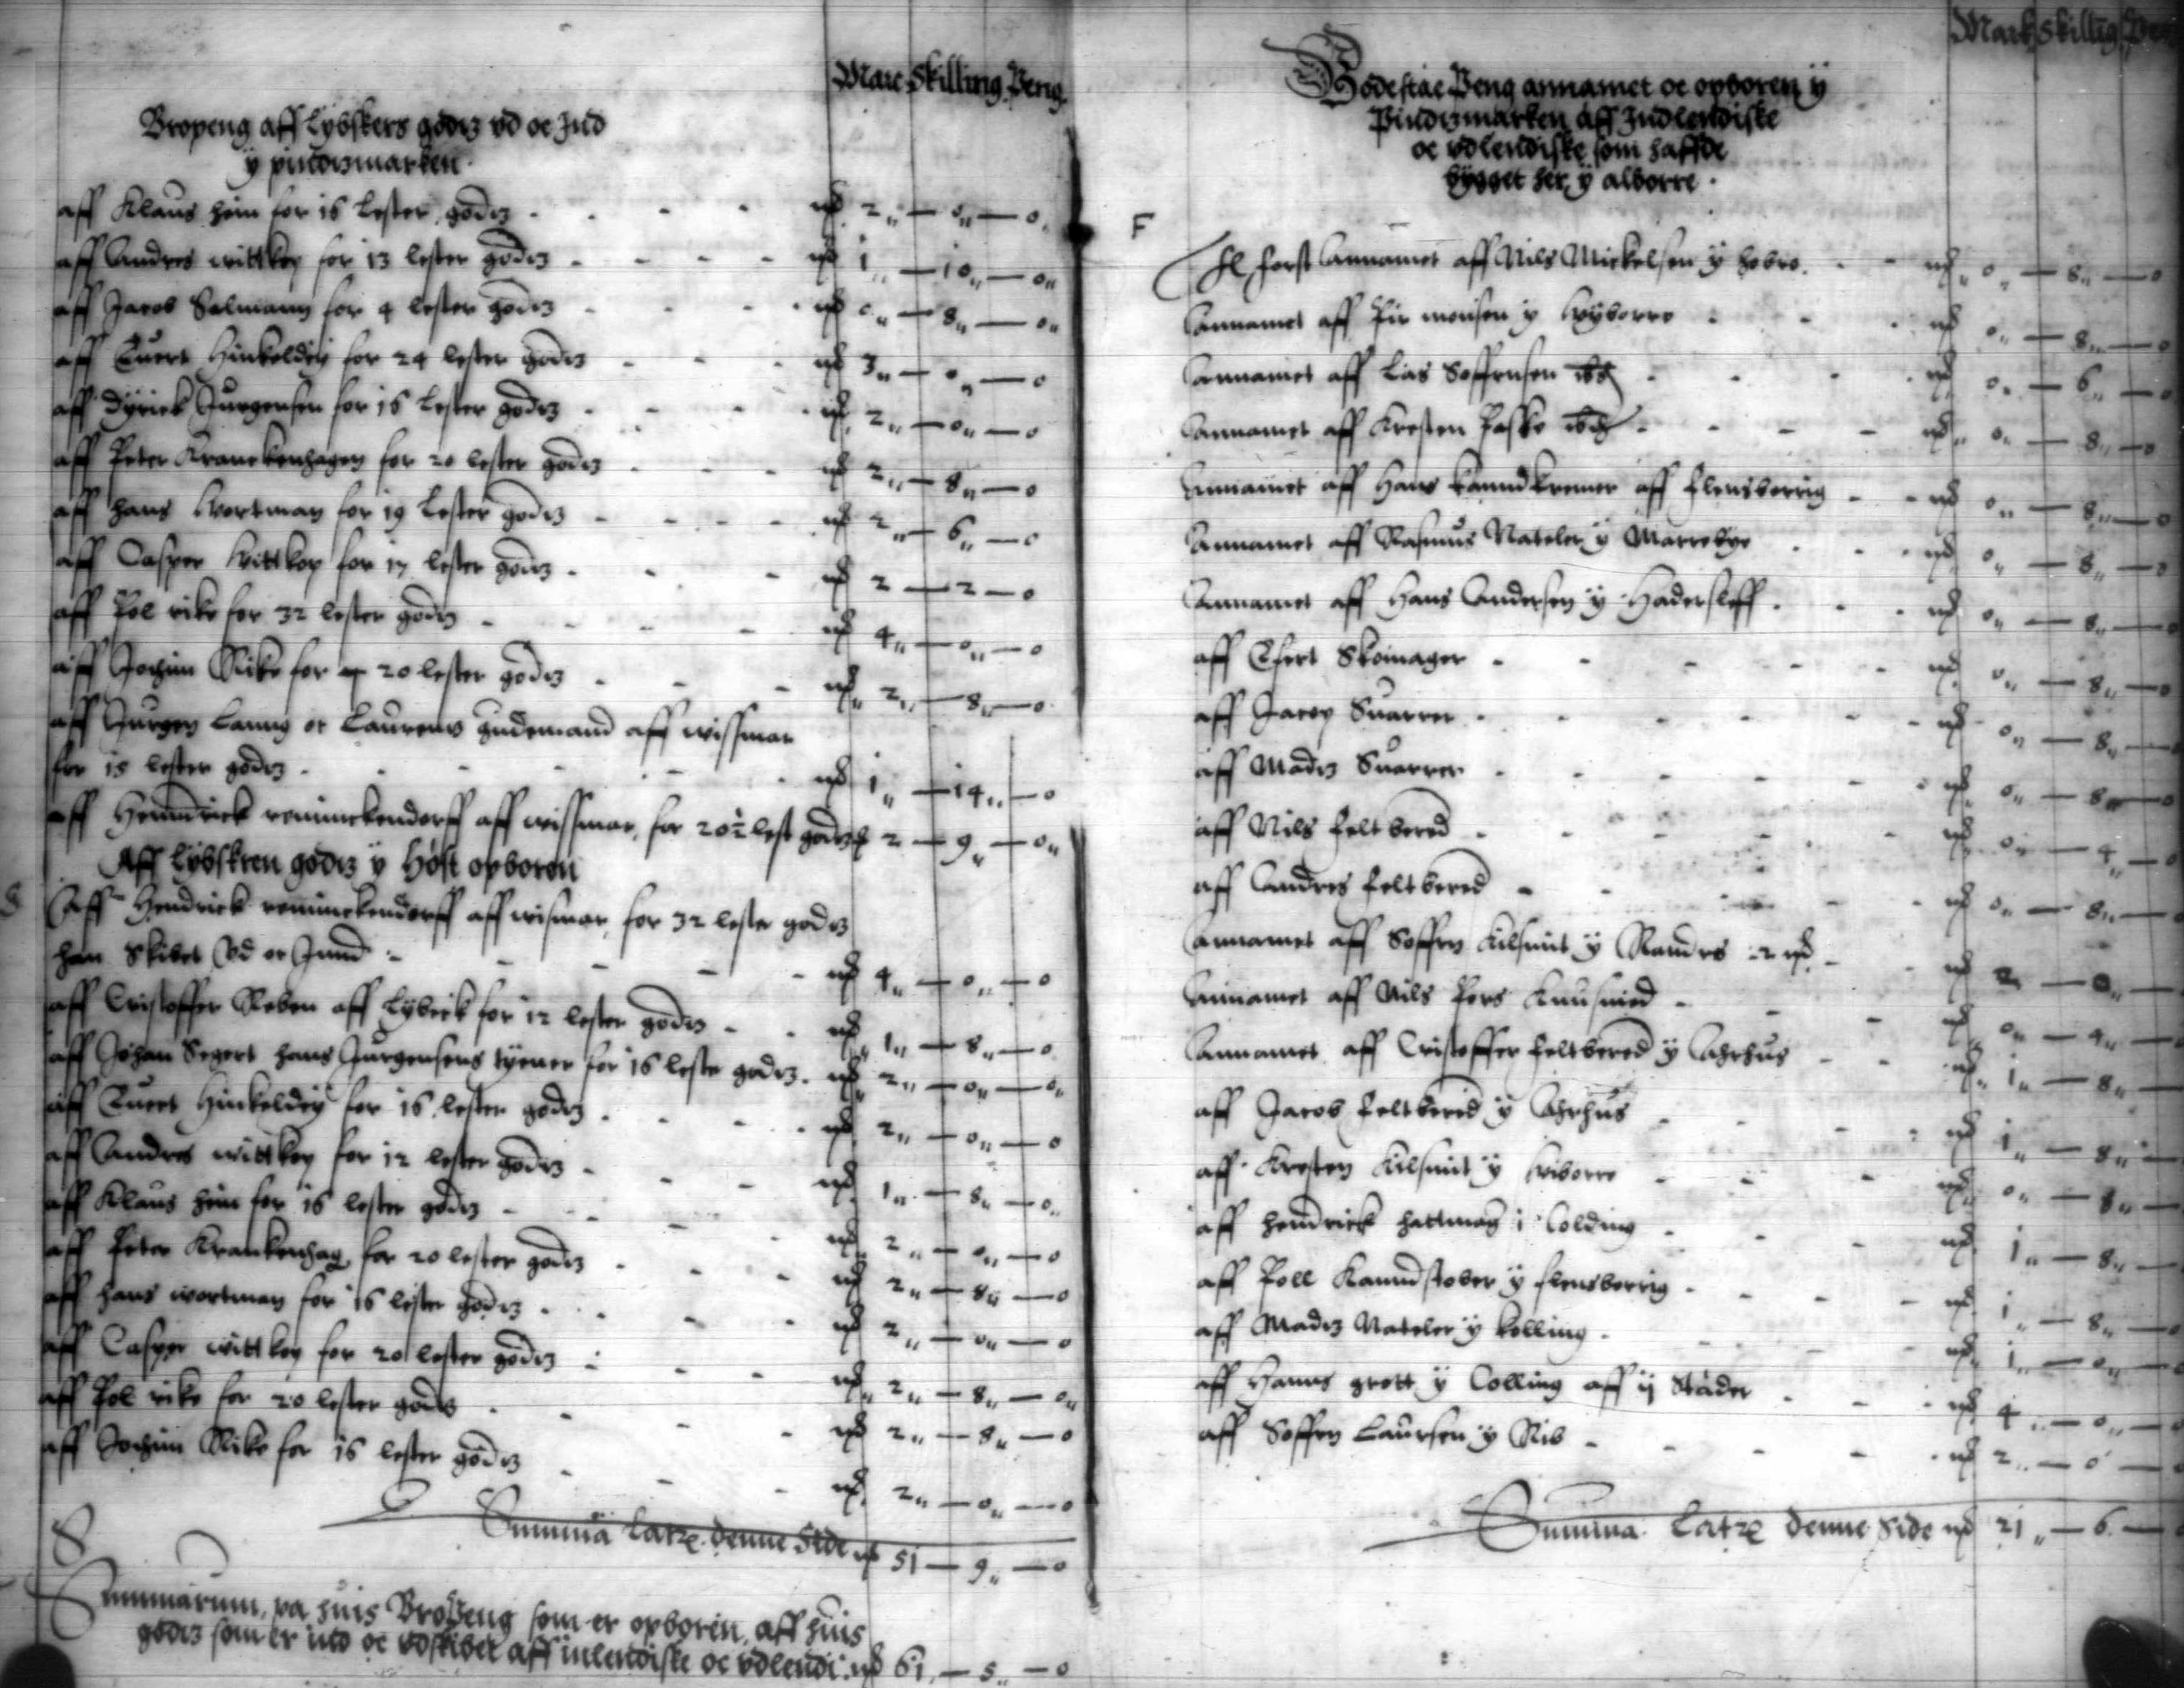 Marc Skilling Peng
Bropeng aff lybskers godtz vd oc Ind
y pindtzmarken
aff Klaus hein for 16 lester godtz - - - - mk 2 — 0 — 0
aff Andres wittkop for 13 lester godtz - - - - mk 1 — 10 — 0
aff Jacob Salmann for 4 lester godtz - - - mk 0 — 8 — 0
aff Euert Hinkeldey for 24 lester godtz - - - mk 3 — 0 — 0
aff Dyrick Jurgensen for 16 lester godtz - - - mk 2 — 0 — 0
aff Peter Kranckenhagen for 20 lester godtz - - - mk 2 — 8 — 0
aff hans Wortman for 19 lester godtz - - - - mk 2 — 6 — 0
aff Casper Wittkop for 17 lester godtz - - - mk 2 — 2 — 0
aff Pol rike for 32 lester godtz - - - mk 4 — 0 — 0
aff Jochim Rike for 20 lester godtz - - - mk 2 — 8 — 0
aff Jurgen Lanng oc Laurens gudemand aff wissmar
for 15 lester godtz - - - - mk 1 — 14 — 0
aff Henndrick remmckendorff aff wissmar for 20½ lest godtz mk 2 — 9 — 0
Aff lybskren godtz y Høst opboren
Aff Hendrick remmckendorff aff wismar for 32 lester godtz
han Skibet vd oc Innd - - - - mk 4 — 0 — 0
aff Cristoffer Reben aff Lybeck for 12 lester godtz - - mk 1 — 8 — 0
aff Johan Segert hans Jurgensens tyener for 16 leste godtz mk 2 — 0 — 0
aff Euert Hinkeldey for 16 lester godtz - - - mk 2 — 0 — 0
aff Andres wittkop for 12 lester godtz - - - mk 1 — 8 — 0
aff Klaus hein for 16 lester godtz - - - mk 2 — 0 — 0
aff Peter Krankenhag for 20 lester godtz - - - mk 2 — 8 — 0
aff hans wortman for 16 lester godtz - - - mk 2 — 0 — 0
aff Casper wittkop for 20 lester godtz - - - mk 2 — 8 — 0
aff Pol rike for 20 lester godtz - - - mk 2 — 8 — 0
aff Jochim Rike for 16 lester godtz - - - mk 2 — 0 — 0
Summa denne Side mk 51 — 9 — 0
Summarum, pa huis Bropeng som er opboren, aff huis
godtz som er ind oc vdskibet aff inlendiske oc vdlendi mk 61 — 5 — 0
Mark Skilling
Bodestae Peng annamet oc opboren y
Pindtzmarken aff Indlendiske
oc vdlendiske som haffde
bygget her y alborre
F
forst Annamet aff Nils Mickelsen y hobro - - mk 0 — 8 — 0
Annamet aff Pir monsen y Wyborre - - - mk 0 — 8 — 0
Annamet aff Las Soffrensen - - - mk 0 — 6 — 0
Annamet aff Kresten Paske - - - mk 0 — 8 — 0
Annamet aff Hans kanndkremer aff flensborrig - - mk 0 — 8 — 0
Annamet aff Rasmus Nateler y Marrebye - - - mk 0 — 8 — 0
Annamet aff Hans Andersen y Hadersleff - - - mk 0 — 8 — 0
aff Efert Skomager - - - - mk 0 — 8 — 0
aff Jacop Suarrer - - - - mk 0 — 8 — 0
aff Madtz Suarrer - - - - mk 0 — 8 — 0
aff Nils feltbered - - - - mk 0 — 4 — 0
aff Andres feltbered - - - - mk 0 — 8 — 0
Annamet aff Soffren Kilsmit y Randrs 2 mk - mk 2 — 0
Annamet aff Nils Pers Knusmed - - - mk 0 — 4 — 0
Annamet aff Cristoffer feltbered y Ahrhus - - mk 1 — 8
aff Jacob feltbered y Ahrhus - - - mk 1 — 8
aff Kresten Kilsmit y Wiborre - - - mk 0 — 8
aff hendrick hattmag i Colding - - - mk 1 — 8
aff Poll Kanndstober y flensborrig - - - mk 1 — 8
aff Madtz Nateler y kolling - - mk 1 — 0
aff Hanns grott y Colling aff ij Stader - - mk 4 — 0
aff Soffren Laursen y Rib - - - mk 2 — 0
Summa denne Side mk 21 — 6